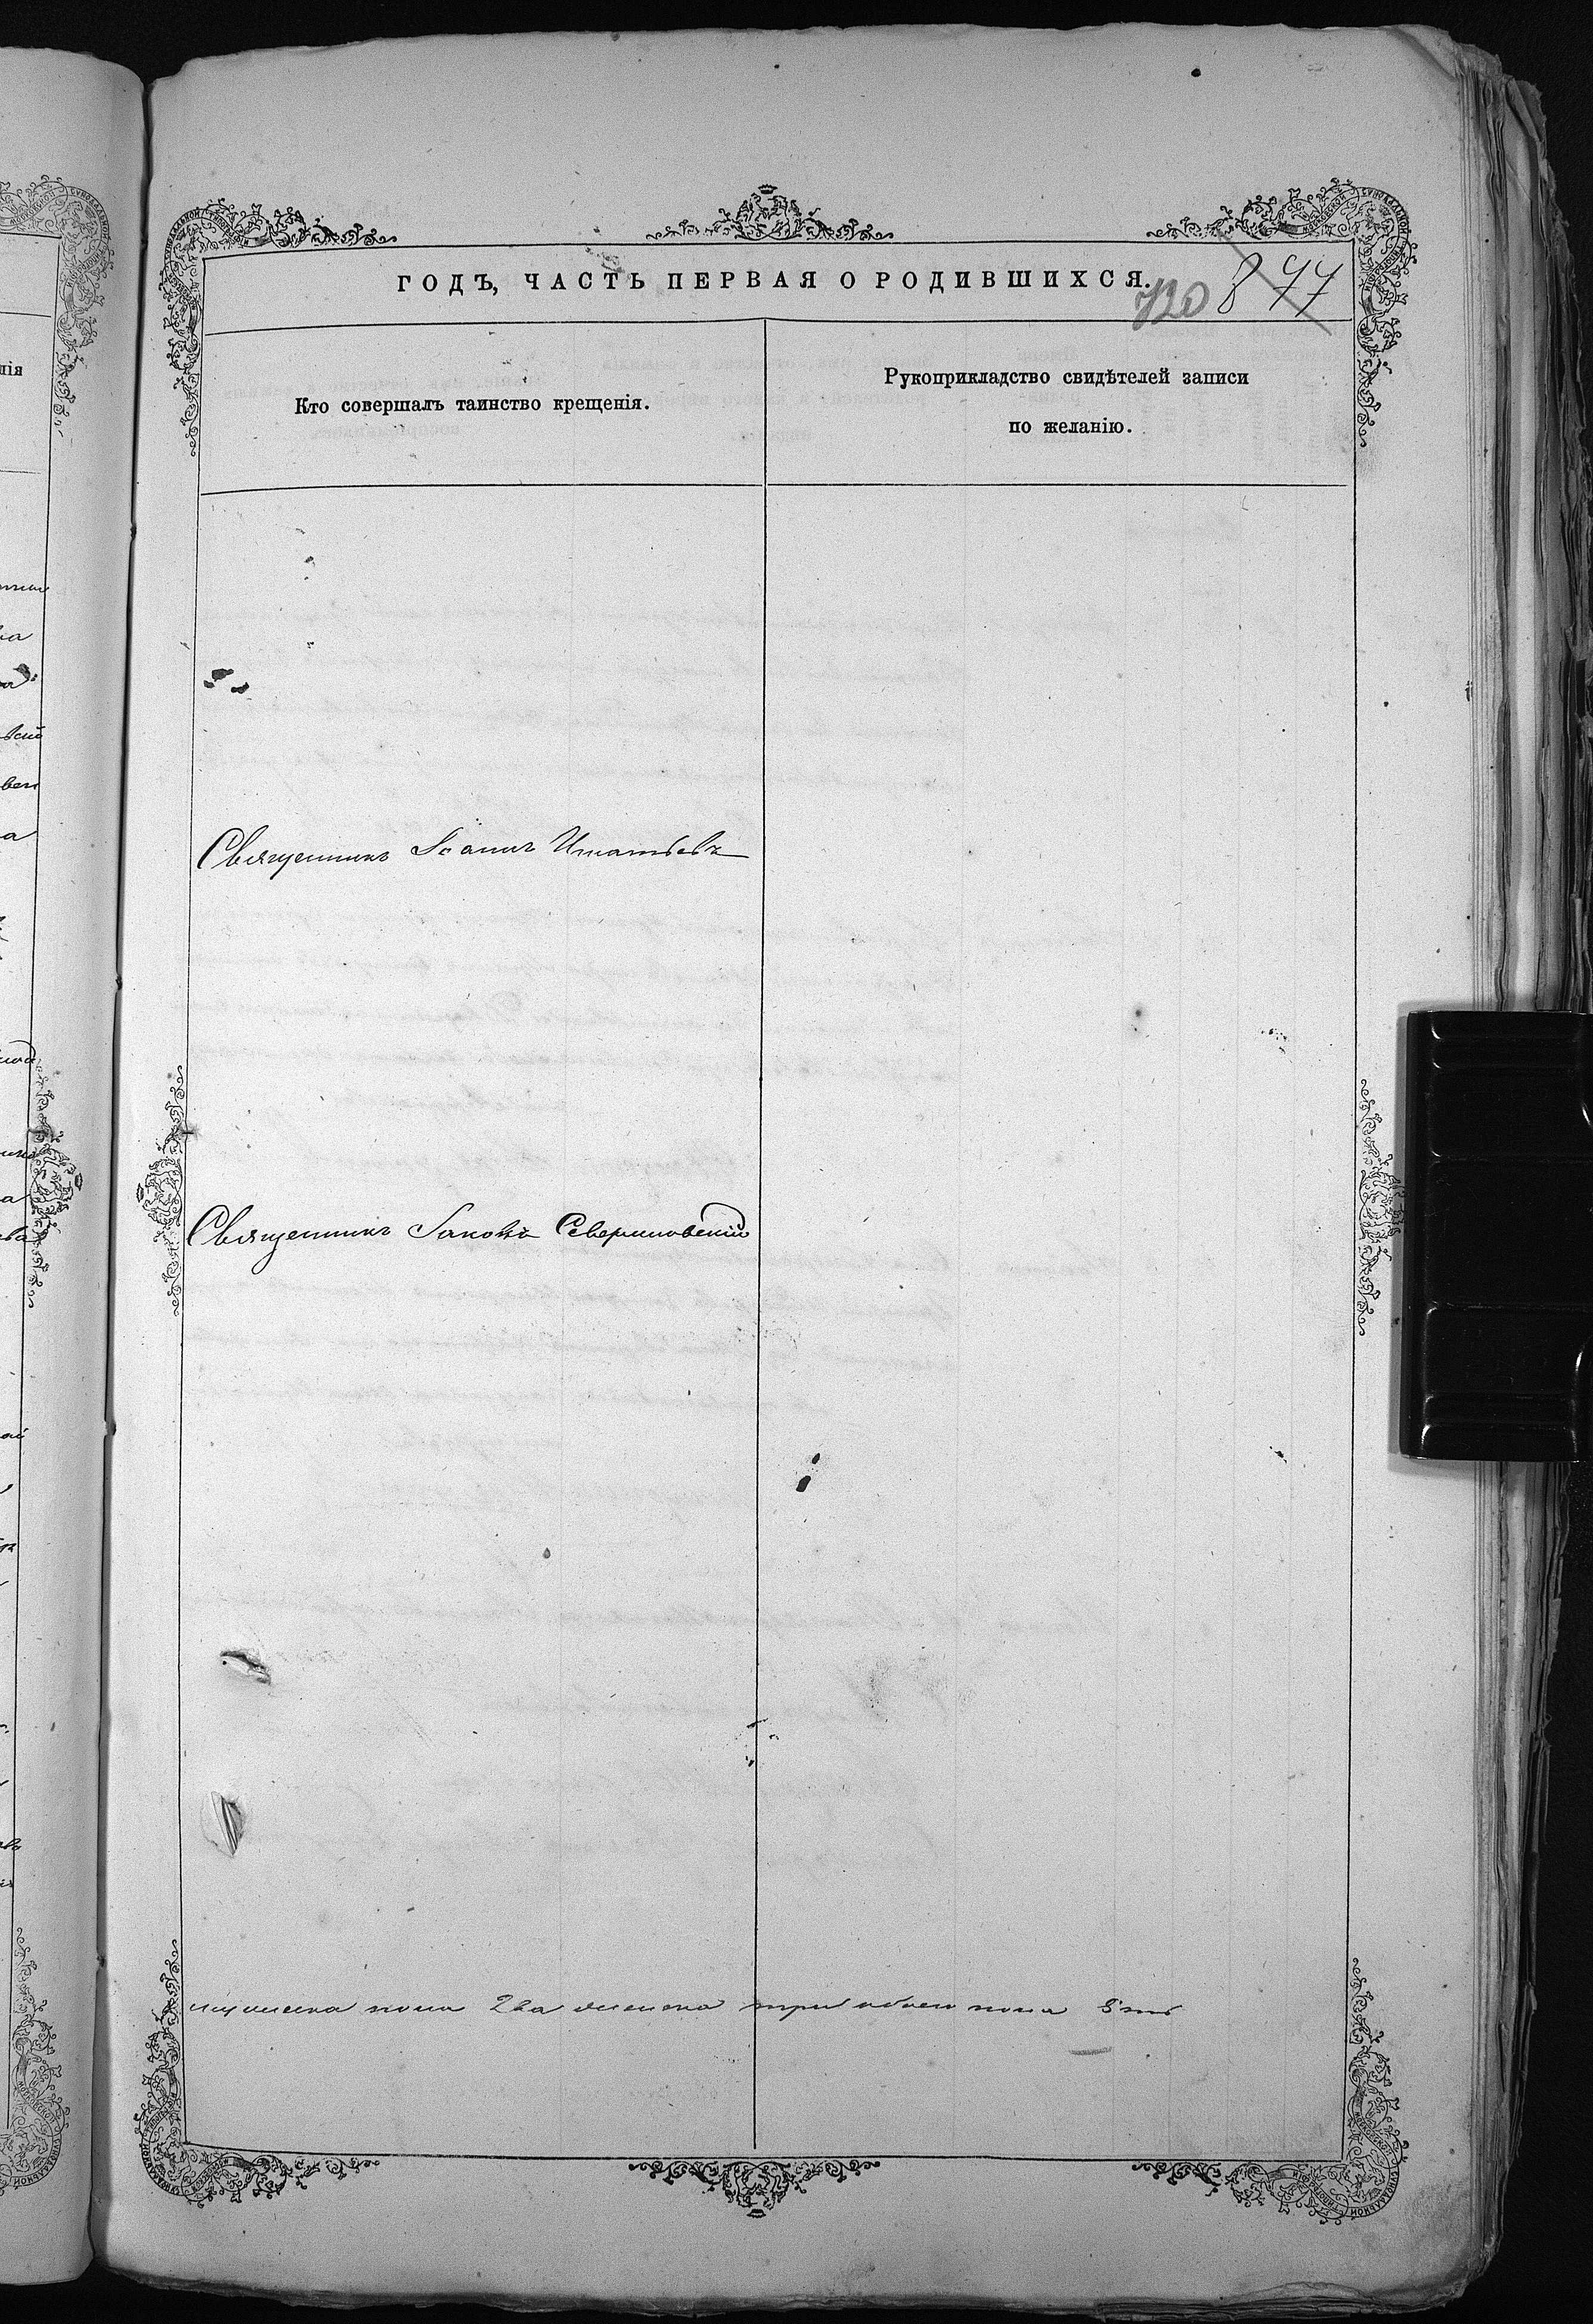 ГОДЪ, ЧАСТЬ ПЕРВАЯ О РОДИВШИХСЯ.
720 844
Кто совершалъ таинство крещенія.
Рукоприкладство свидѣтелей записи
по желанію.
Священникъ Іоаннъ Игнатьевъ
Священникъ Іаковъ Севериновскій
мужеска пола два женска три обоего пола 5ть